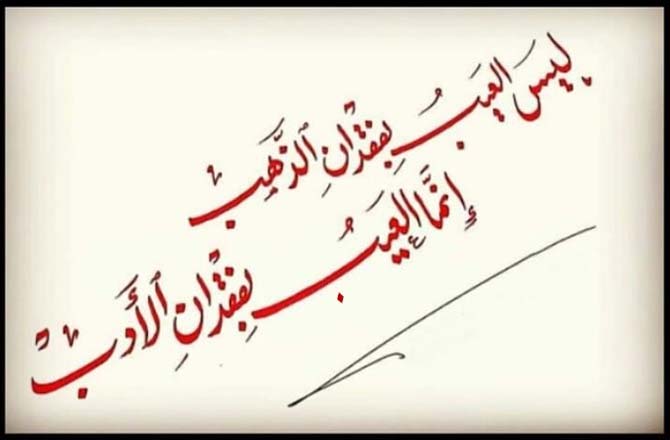 ليسَ العيبُ بِفقدانِ الذَّهبِ
إنَّما العيَبُ بِفقدانِ الأَدبِ